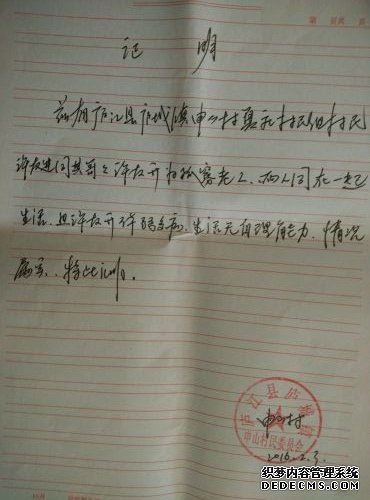 证 明
兹有庐江县庐城镇申山村夏元村民组村民
许友进同其哥哥许友开为孤寡老人,两人同在一起
生活,且许友开体弱多病,生活无自理能力,情况
属实,特此证明。
庐江县庐城镇
申山村
申山村民委员会
2016.2.3.
织梦内容管理系统
DEDECMS.COM